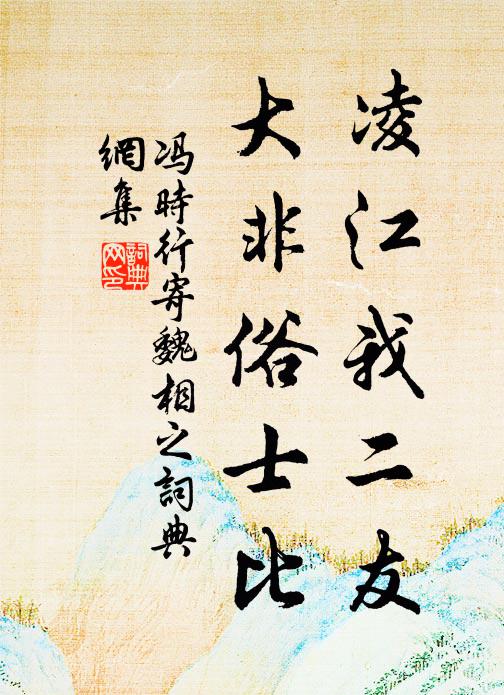 凌江我二友
大非俗士比
冯時行寄魏相之詞典
網集
詞典
网印